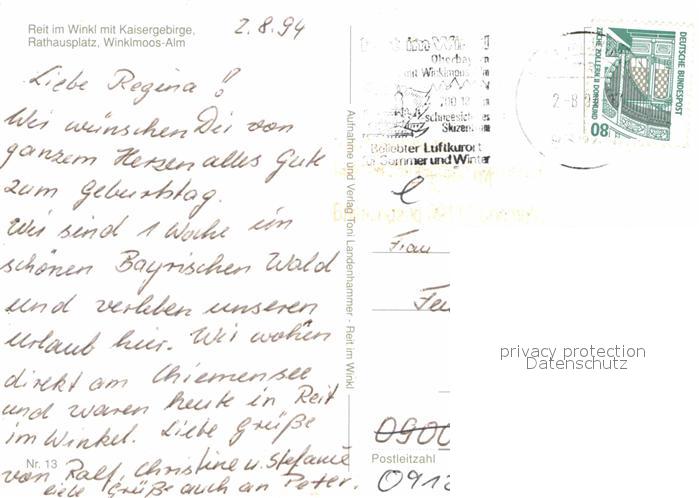 Reit im Winkl mit Kaisergebirge,
Rathausplatz, Winklmoos-Alm
2.8.94
Liebe Regina!
Wir wünschen Dir von
ganzem Herzen alles Gute
zum Geburtstag.
Wir sind 1 Woche im
schönen Bayrischen Wald
und verleben unseren
Urlaub hier. Wir wohnen
direkt am Chiemensee
und waren heute in Reit
im Winkel. Liebe Grüße
von Ralf, Christine u. Stefanie
Liebe Grüße auch an Peter.
Nr. 13
Aufnahme und Verlag Toni Landenhammer - Reit im Winkl
Oberbayern
mit Winklmoos
schneesicher
Beliebter Luftkurort
für Sommer und Winter
DEUTSCHE BUNDESPOST
ZECHE ZOLLERN II DORTMUND
80
Frau
privacy protection
Datenschutz
Postleitzahl
0912